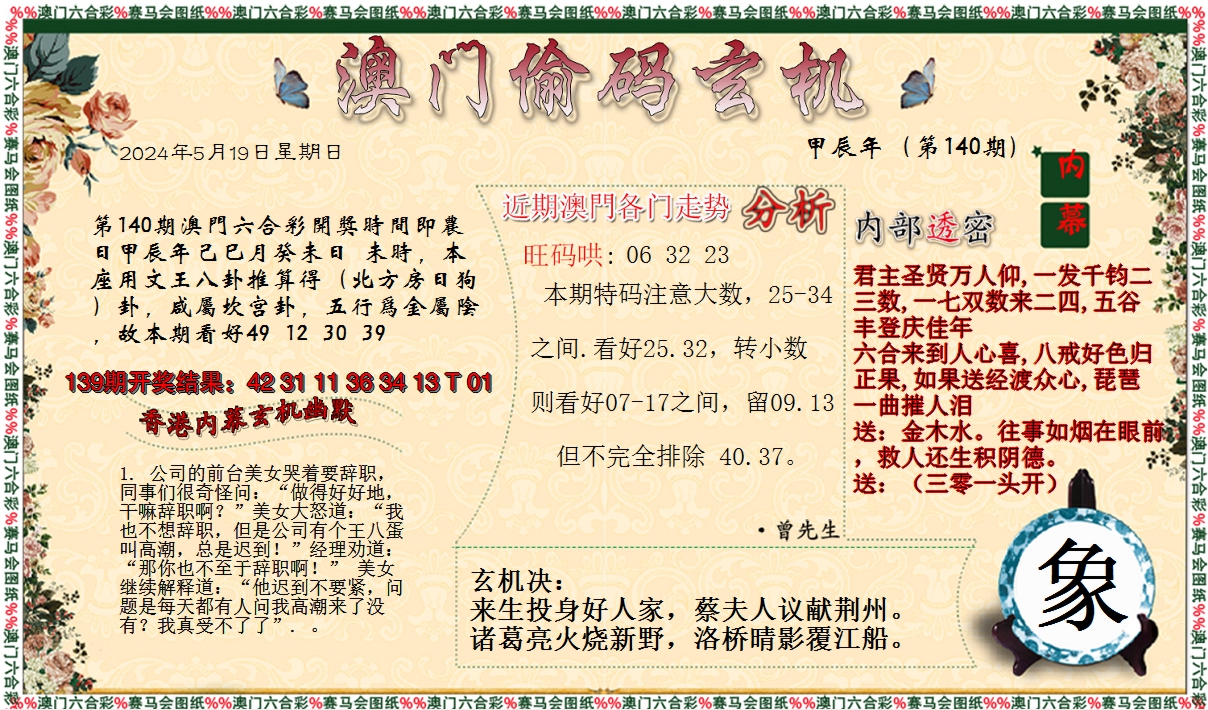 %%澳门六合彩%赛马会图纸%%澳门六合彩%赛马会图纸%%澳门六合彩%赛马会图纸%%澳门六合彩%赛马会图纸%%澳门六合彩%赛马会图纸%%澳门六合彩%赛马会图纸%%澳门六合彩%赛马会图纸%%
澳门偷码玄机
2024年5月19日星期日
甲辰年（第140期）
内幕
第140期澳門六合彩開獎時間即農
日甲辰年己巳月癸未日 未時，本
座用文王八卦推算得（北方房日狗
）卦，咸屬坎宫卦，五行爲金屬陰
，故本期看好49 12 30 39
139期开奖结果：42 31 11 36 34 13 T 01
香港内幕玄机幽默
1. 公司的前台美女哭着要辞职，
同事们很奇怪问：“做得好好地，
干嘛辞职啊？”美女大怒道：“我
也不想辞职，但是公司有个王八蛋
叫高潮，总是迟到！”经理劝道：
“那你也不至于辞职啊！” 美女
继续解释道：“他迟到不要紧，问
题是每天都有人问我高潮来了没
有？我真受不了了”. 。
近期澳門各门走势 分析
旺码哄: 06 32 23
本期特码注意大数，25-34
之间.看好25.32，转小数
则看好07-17之间，留09.13
但不完全排除 40.37。
·曾先生
内部透密
君主圣贤万人仰,一发千钧二
三数,一七双数来二四,五谷
丰登庆佳年
六合来到人心喜,八戒好色归
正果,如果送经渡众心,琵琶
一曲摧人泪
送：金木水。往事如烟在眼前
，救人还生积阴德。
送：（三零一头开）
玄机决：
来生投身好人家，蔡夫人议献荆州。
诸葛亮火烧新野，洛桥晴影覆江船。
象
%%澳门六合彩%赛马会图纸%%澳门六合彩%赛马会图纸%%澳门六合彩%赛马会图纸%%澳门六合彩%赛马会图纸%%澳门六合彩%赛马会图纸%%澳门六合彩%赛马会图纸%%澳门六合彩%赛马会图纸%%